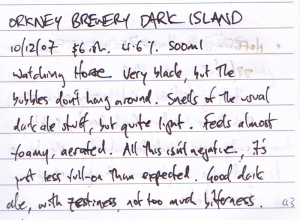 ORKNEY BREWERY DARK ISLAND
10/12/07 $6.ish. 4.6%. 500ml
Watching House. Very black, but the
bubbles don't hang around. Smells of the usual
dark ale stuff, but quite light. Feels almost
foamy, aerated. All this isn't negative, it's
just less full-on than expected. Good dark
ale, with zestiness, not too much bitterness.